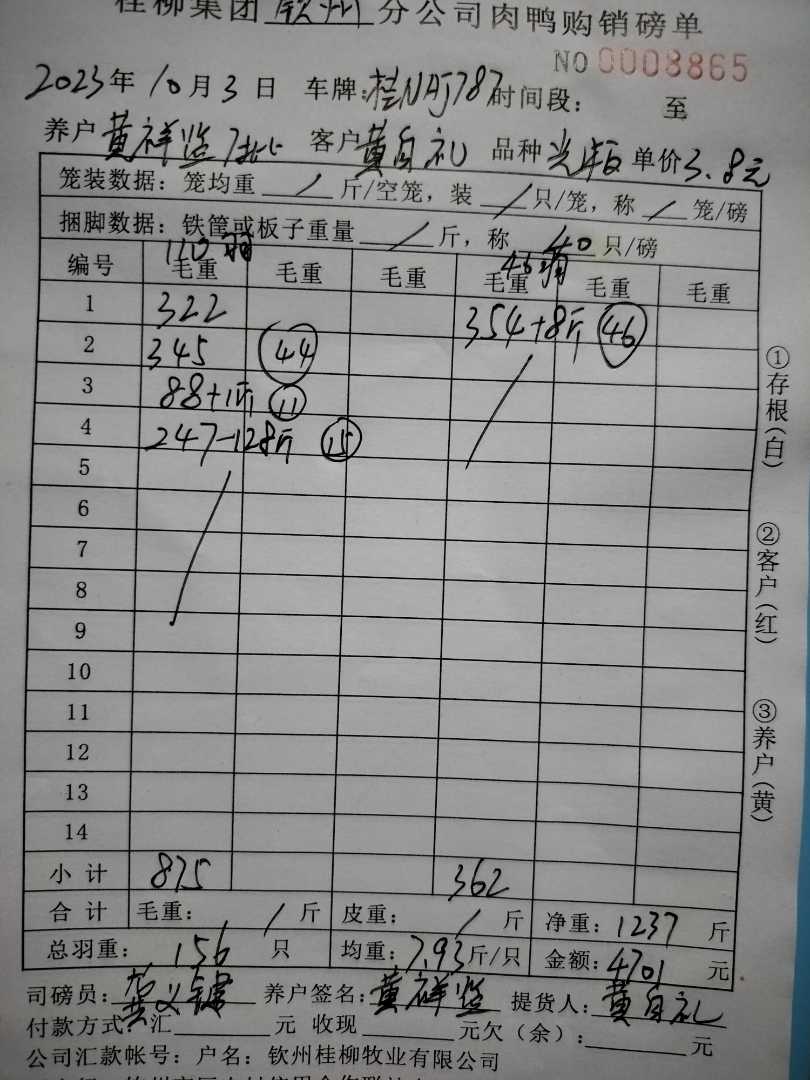 桂柳集团 钦州 分公司肉鸭购销磅单
NO 0008865
2023年10月3日 车牌:桂NAJ787 时间段: 至
养户 黄祥监 客户 黄自礼 品种 单价 3.8元
笼装数据: 笼均重 / 斤/空笼, 装 / 只/笼, 称 / 笼/磅
捆脚数据: 铁筐或板子重量 / 斤, 称 40 只/磅
110 46
编号 毛重 毛重 毛重 毛重 毛重 毛重
1 322 354+8斤 46
2 345 44
3 88+1斤 11
4 247-128斤 15
5
6
7
8
9
10
11
12
13
14
小计 875 362
合计 毛重: / 斤 皮重: / 斤 净重: 1237 斤
总羽重: 156 只 均重: 7.93斤/只 金额: 4701 元
司磅员: 养户签名: 黄祥监 提货人: 黄自礼
付款方式: 汇 元 收现 元欠(余): 元
公司汇款帐号: 户名: 钦州桂柳牧业有限公司
①存根(白)
②客户(红)
③养户(黄)